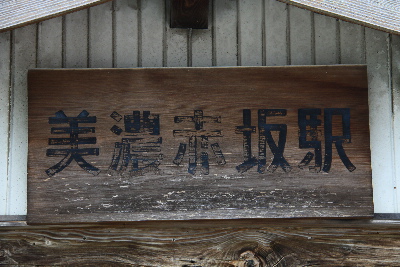 美濃赤坂駅